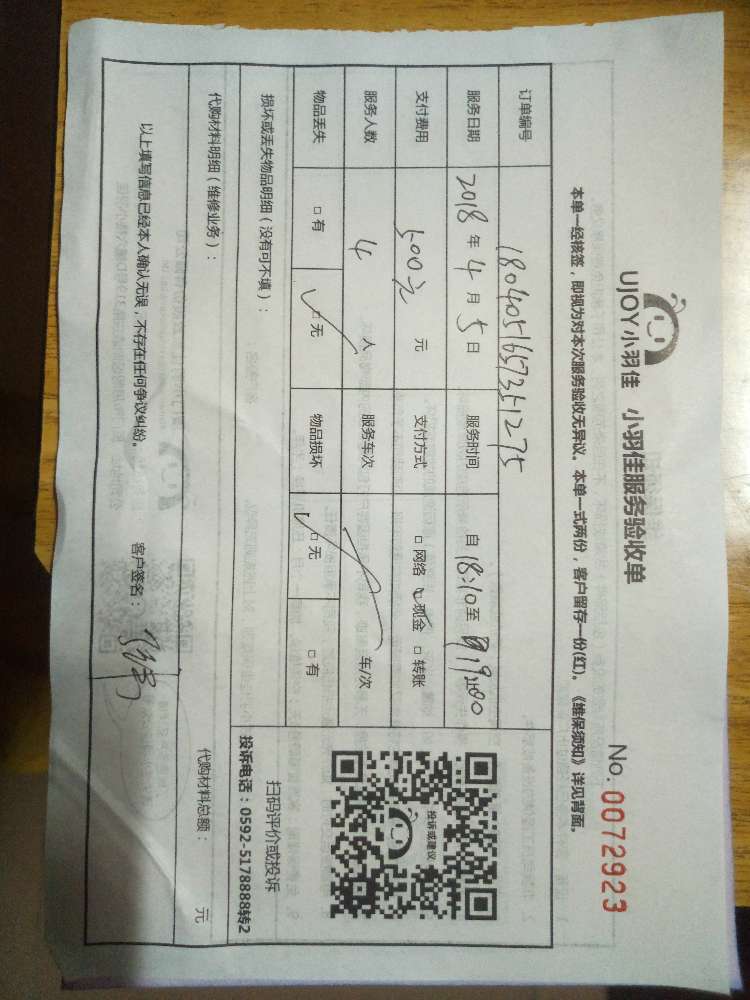 UJOY小羽佳 小羽佳服务验收单
No. 0072923
本单一经核签，即视为对本次服务验收无异议。本单一式两份，客户留存一份(红)。《维保须知》详见背面。
订单编号 18040516573251275
服务日期 2018年4月5日 服务时间 自18:10至19:00
支付费用 500元 元 支付方式 □网络 □现金 □转账
服务人数 4人 服务车次 车/次
物品丢失 □有 □无 物品损坏 □无 □有
投诉或建议
扫码评价或投诉
投诉电话：0592-5178888转2
损坏或丢失物品明细（没有可不填）：
代购材料明细（维修业务）： 代购材料总额： 元
以上填写信息已经本人确认无误，不存在任何争议纠纷。 客户签名：